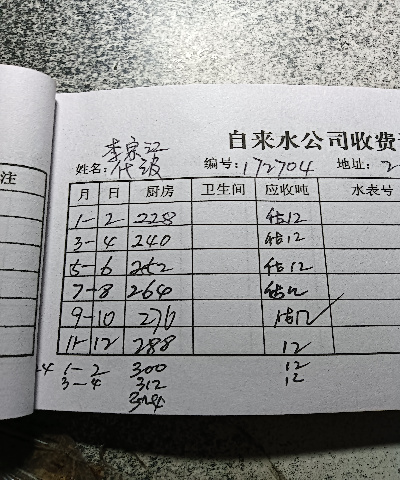 自来水公司收费
李家江
姓名: 代波 编号: 172704 地址: 2
注 月 日 厨房 卫生间 应收吨 水表号
1-2 228 估12
3-4 240 估12
5-6 252 估12
7-8 264 估12
9-10 276 估12
11-12 288 12
1-2 300 12
3-4 312 12
324